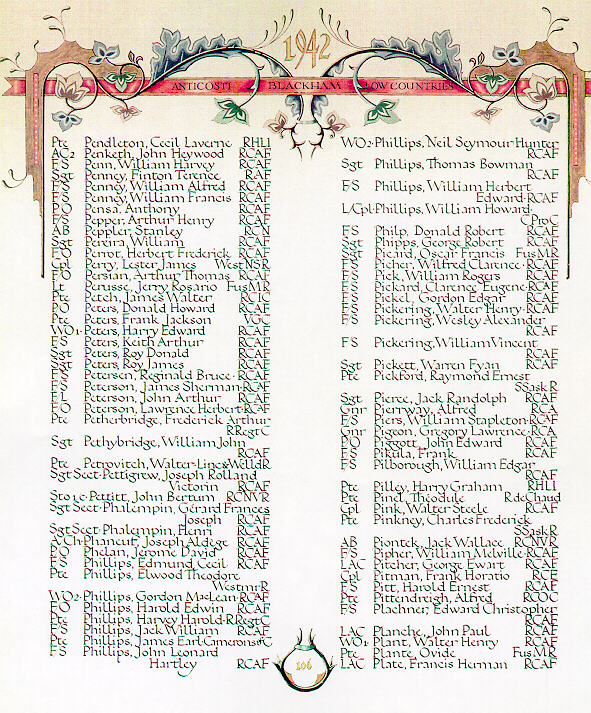 1942
ANTICOSTI BLACKHAM LOW COUNTRIES
Pte Pendleton, Cecil Laverne RHLI
AC2 Penketh, John Heywood RCAF
FS Penn, William Harvey RCAF
Sgt Penney, Finton Terence RAF
F/S Penney, William Alfred RCAF
F/S Penney, William Francis RCAF
PO Pensa, Anthony RCAF
F/S Pepper, Arthur Henry RCAF
AB Peppler, Stanley RCN
Sgt Pereira, William RCAF
FO Perrot, Herbert Frederick RCAF
Cpl Perry, Lester James West NSR
FO Persian, Arthur Thomas RCAF
Lt Perusse, Jerry Rosario Fus MR
Pte Petch, James Walter RCIC
PO Peters, Donald Howard RCAF
Pte Peters, Frank Jackson VGC
WO1 Peters, Harry Edward RCAF
FS Peters, Keith Arthur RCAF
Sgt Peters, Roy Donald RCAF
Sgt Peters, Roy James RCAF
FS Petersen, Reginald Bruce RCAF
FS Peterson, James Sherman RCAF
FL Peterson, John Arthur RCAF
FO Peterson, Lawrence Herbert RCAF
Pte Petherbridge, Frederick Arthur
RRegtC
Sgt Pethybridge, William John
RCAF
Pte Petrovitch, Walter Linc&WelldR
Sgt Sect Pettigrew, Joseph Rolland
Victorin RCAF
Sto 1c Pettitt, John Bertum RCNVR
Sgt Sect Phalempin, Gérard Frances
Joseph RCAF
Sgt Sect Phalempin, Henri RCAF
A/Ch Phaneuf, Joseph Aldege RCAF
PO Phelan, Jerome David RCAF
FS Phillips, Edmund Cecil RCAF
Pte Phillips, Elwood Theodore
WestmrR
WO2 Phillips, Gordon MacLean RCAF
FO Phillips, Harold Edwin RCAF
Pte Phillips, Harvey Harold RRegtC
FS Phillips, Jack William RCAF
Pte Phillips, James Earl CameronsofC
FS Phillips, John Leonard
Hartley RCAF
WO2 Phillips, Neil Seymour Hunter
RCAF
Sgt Phillips, Thomas Bowman
RCAF
FS Phillips, William Herbert
Edward RCAF
L/Cpl Phillips, William Howard
CProC
FS Philp, Donald Robert RCAF
Sgt Phipps, George Robert RCAF
Sgt Picard, Oscar Francis Fus MR
FS Picher, Wilfred Clarence RCAF
FS Pick, William Rogers RCAF
FS Pickard, Clarence Eugene RCAF
FS Pickel, Gordon Edgar RCAF
FS Pickering, Walter Henry RCAF
FS Pickering, Wesley Alexander
RCAF
FS Pickering, William Vincent
RCAF
Sgt Pickett, Warren Fyan RCAF
Pte Pickford, Raymond Ernest
SSaskR
Sgt Pierce, Jack Randolph RCAF
Gnr Pierrway, Alfred RCA
FS Piers, William Stapleton RCAF
Gnr Pigeon, Gregory Lawrence RCA
PO Piggott, John Edward RCAF
FS Pikula, Frank RCAF
FS Pilborough, William Edgar
RCAF
Pte Pilley, Harry Graham RHLI
Pte Pinel, Théodule R de Chaud
Cpl Pink, Walter Steele RCAF
Pte Pinkney, Charles Frederick
SSaskR
AB Piontek, Jack Wallace RCNVR
FS Pipher, William Melville RCAF
LAC Pitcher, George Ewart RCAF
Cpl Pitman, Frank Horatio RCE
FS Pitt, Harold Ernest RCAF
Pte Pittendreigh, Alfred RCOC
FS Plachner, Edward Christopher
RCAF
LAC Planche, John Paul RCAF
WO1 Plant, Walter Henry RCAF
Pte Plante, Ovide Fus MR
LAC Plate, Francis Herman RCAF
106